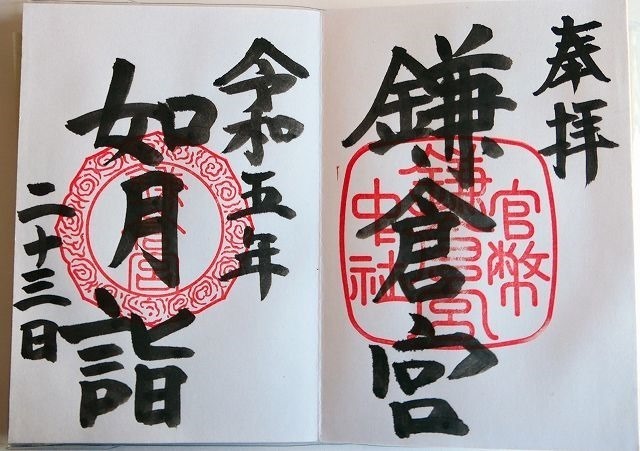 奉拝
鎌倉宮
官幣
鎌倉宮
中社
令和五年
如月詣
二十三日